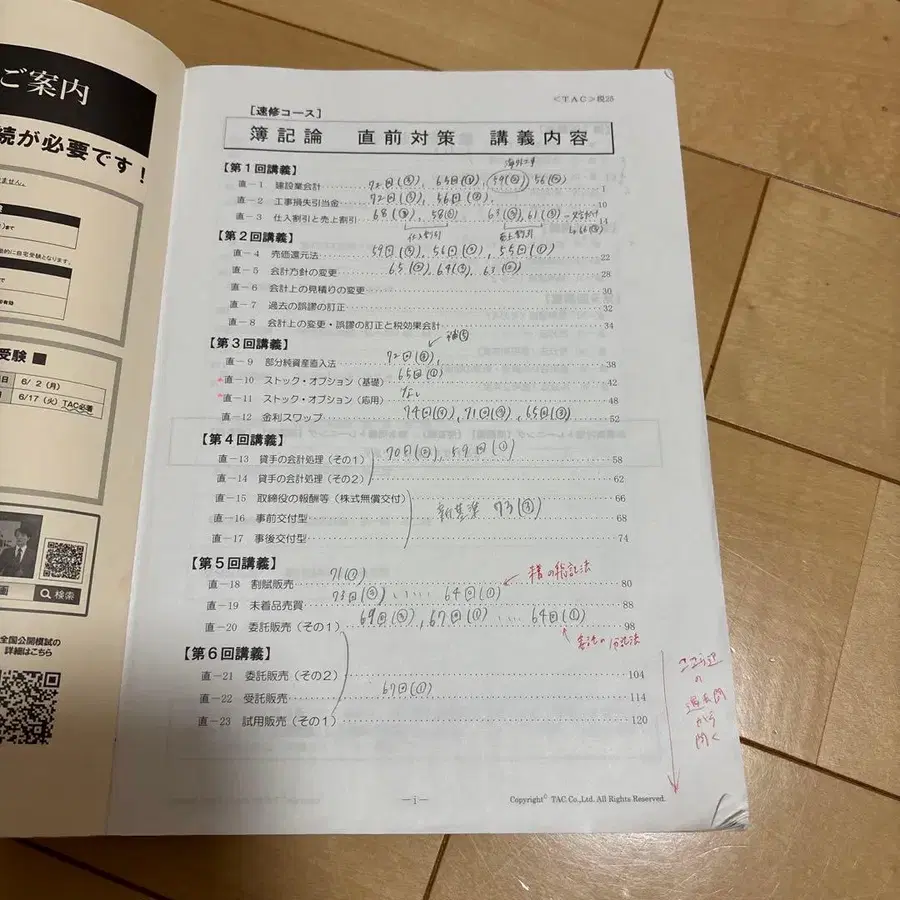 ご案内
続が必要です！
ません。
まで
的に自宅受験となります。
で
有効
受験 ■
日 6/ 2（月）
日 6/17（火）TAC必着
画 検索
全国公開模試の
詳細はこちら
＜TAC＞税25
［速修コース］
簿記論 直前対策 講義内容
【第1回講義】
直－1 建設業会計 72回(③), 65回(③), 59回(②) 56回(②) 1
直－2 工事損失引当金 72回(③), 56回(②), 10
直－3 仕入割引と売上割引 68(③), 58② 63(③), 61(③) 14
仕入割引 売上割引
【第2回講義】
直－4 売価還元法 59回(③), 56回(②), 55回(①) 22
直－5 会計方針の変更 65(②), 64(③), 63(②) 28
直－6 会計上の見積りの変更 30
直－7 過去の誤謬の訂正 32
直－8 会計上の変更・誤謬の訂正と税効果会計 34
【第3回講義】
直－9 部分純資産直入法 72回(③), 38
直－10 ストック・オプション（基礎） 65回(②) 42
直－11 ストック・オプション（応用） なし 48
直－12 金利スワップ 74回(②), 71回(③), 65回(③) 52
【第4回講義】
直－13 貸手の会計処理（その1） 70回(②), 59回(①) 58
直－14 貸手の会計処理（その2） 62
直－15 取締役の報酬等（株式無償交付） 66
直－16 事前交付型 新基準 73(③) 68
直－17 事後交付型 74
【第5回講義】
71(②)
直－18 割賦販売 80
直－19 未着品売買 73回(②) ‥‥ 64回(①) 88
直－20 委託販売（その1） 69回(③), 67回(①) ‥‥ 64回(①) 98
【第6回講義】
直－21 委託販売（その2） 104
直－22 受託販売 67回(①) 114
直－23 試用販売（その1） 120
ここら辺
の
過去問
から
聞く
―i―
Copyright© TAC Co.,Ltd. All Rights Reserved.